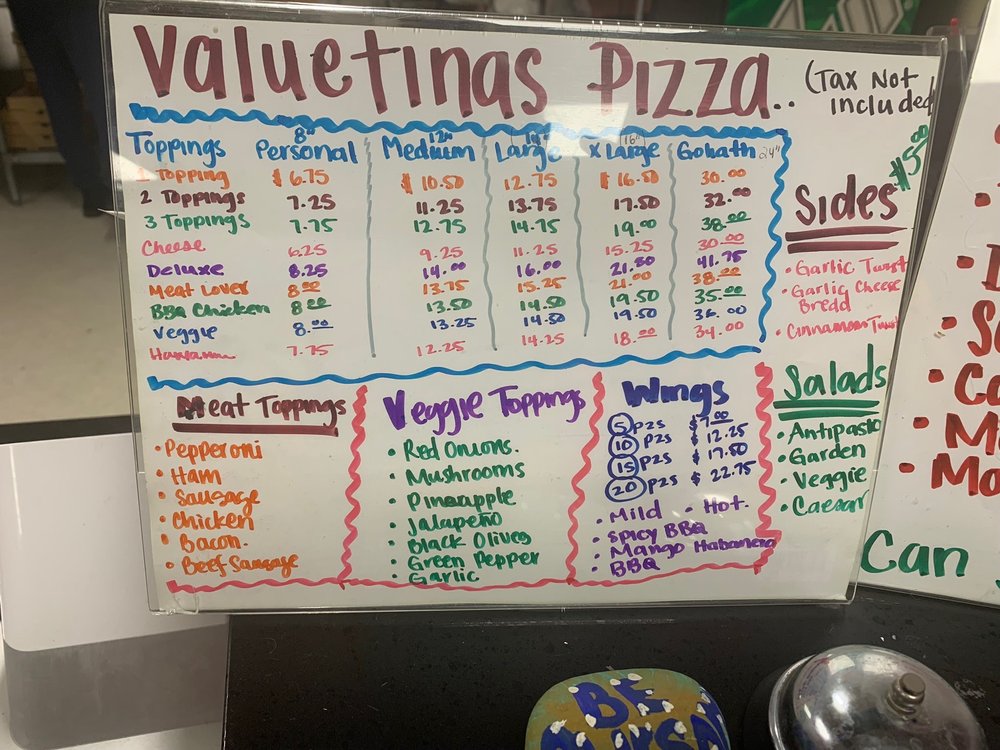 Valuetinas Pizza..
(Tax Not
included
8" 12" 14" 16"
Toppings Personal Medium Large X Large Goliath 24"
1 Topping $ 6.75 $ 10.50 12.75 $ 16.50 30.00
2 Toppings 7.25 11.25 13.75 17.50 32.00
3 Toppings 7.75 12.75 14.75 19.00 38.00
Cheese 6.25 9.25 11.25 15.25 30.00
Deluxe 8.25 14.00 16.00 21.50 41.75
Meat Lover 8.00 13.75 15.25 21.00 38.00
BBQ Chicken 8.00 13.50 14.50 19.50 35.00
Veggie 8.00 13.25 14.50 19.50 36.00
7.75 12.25 14.25 18.00 34.00
$5.00
Sides
• Garlic Twist
• Garlic Cheese
Bredd
• Cinnamon Twist
Meat Toppings
• Pepperoni
• Ham
• Sausage
• Chicken
• Bacon.
• Beef Sausage
Veggie Toppings
• Red Onions.
• Mushrooms
• Pineapple
• Jalapeño
• Black Olives
• Green Pepper
• Garlic
Wings
5 pzs $7.00
10 pzs $ 12.25
15 pzs $ 17.50
20 pzs $ 22.75
• Mild • Hot.
• Spicy BBQ
• Mango Habanero
• BBQ
Salads
• Antipasto
• Garden
• Veggie
• Caesar
Can
BE